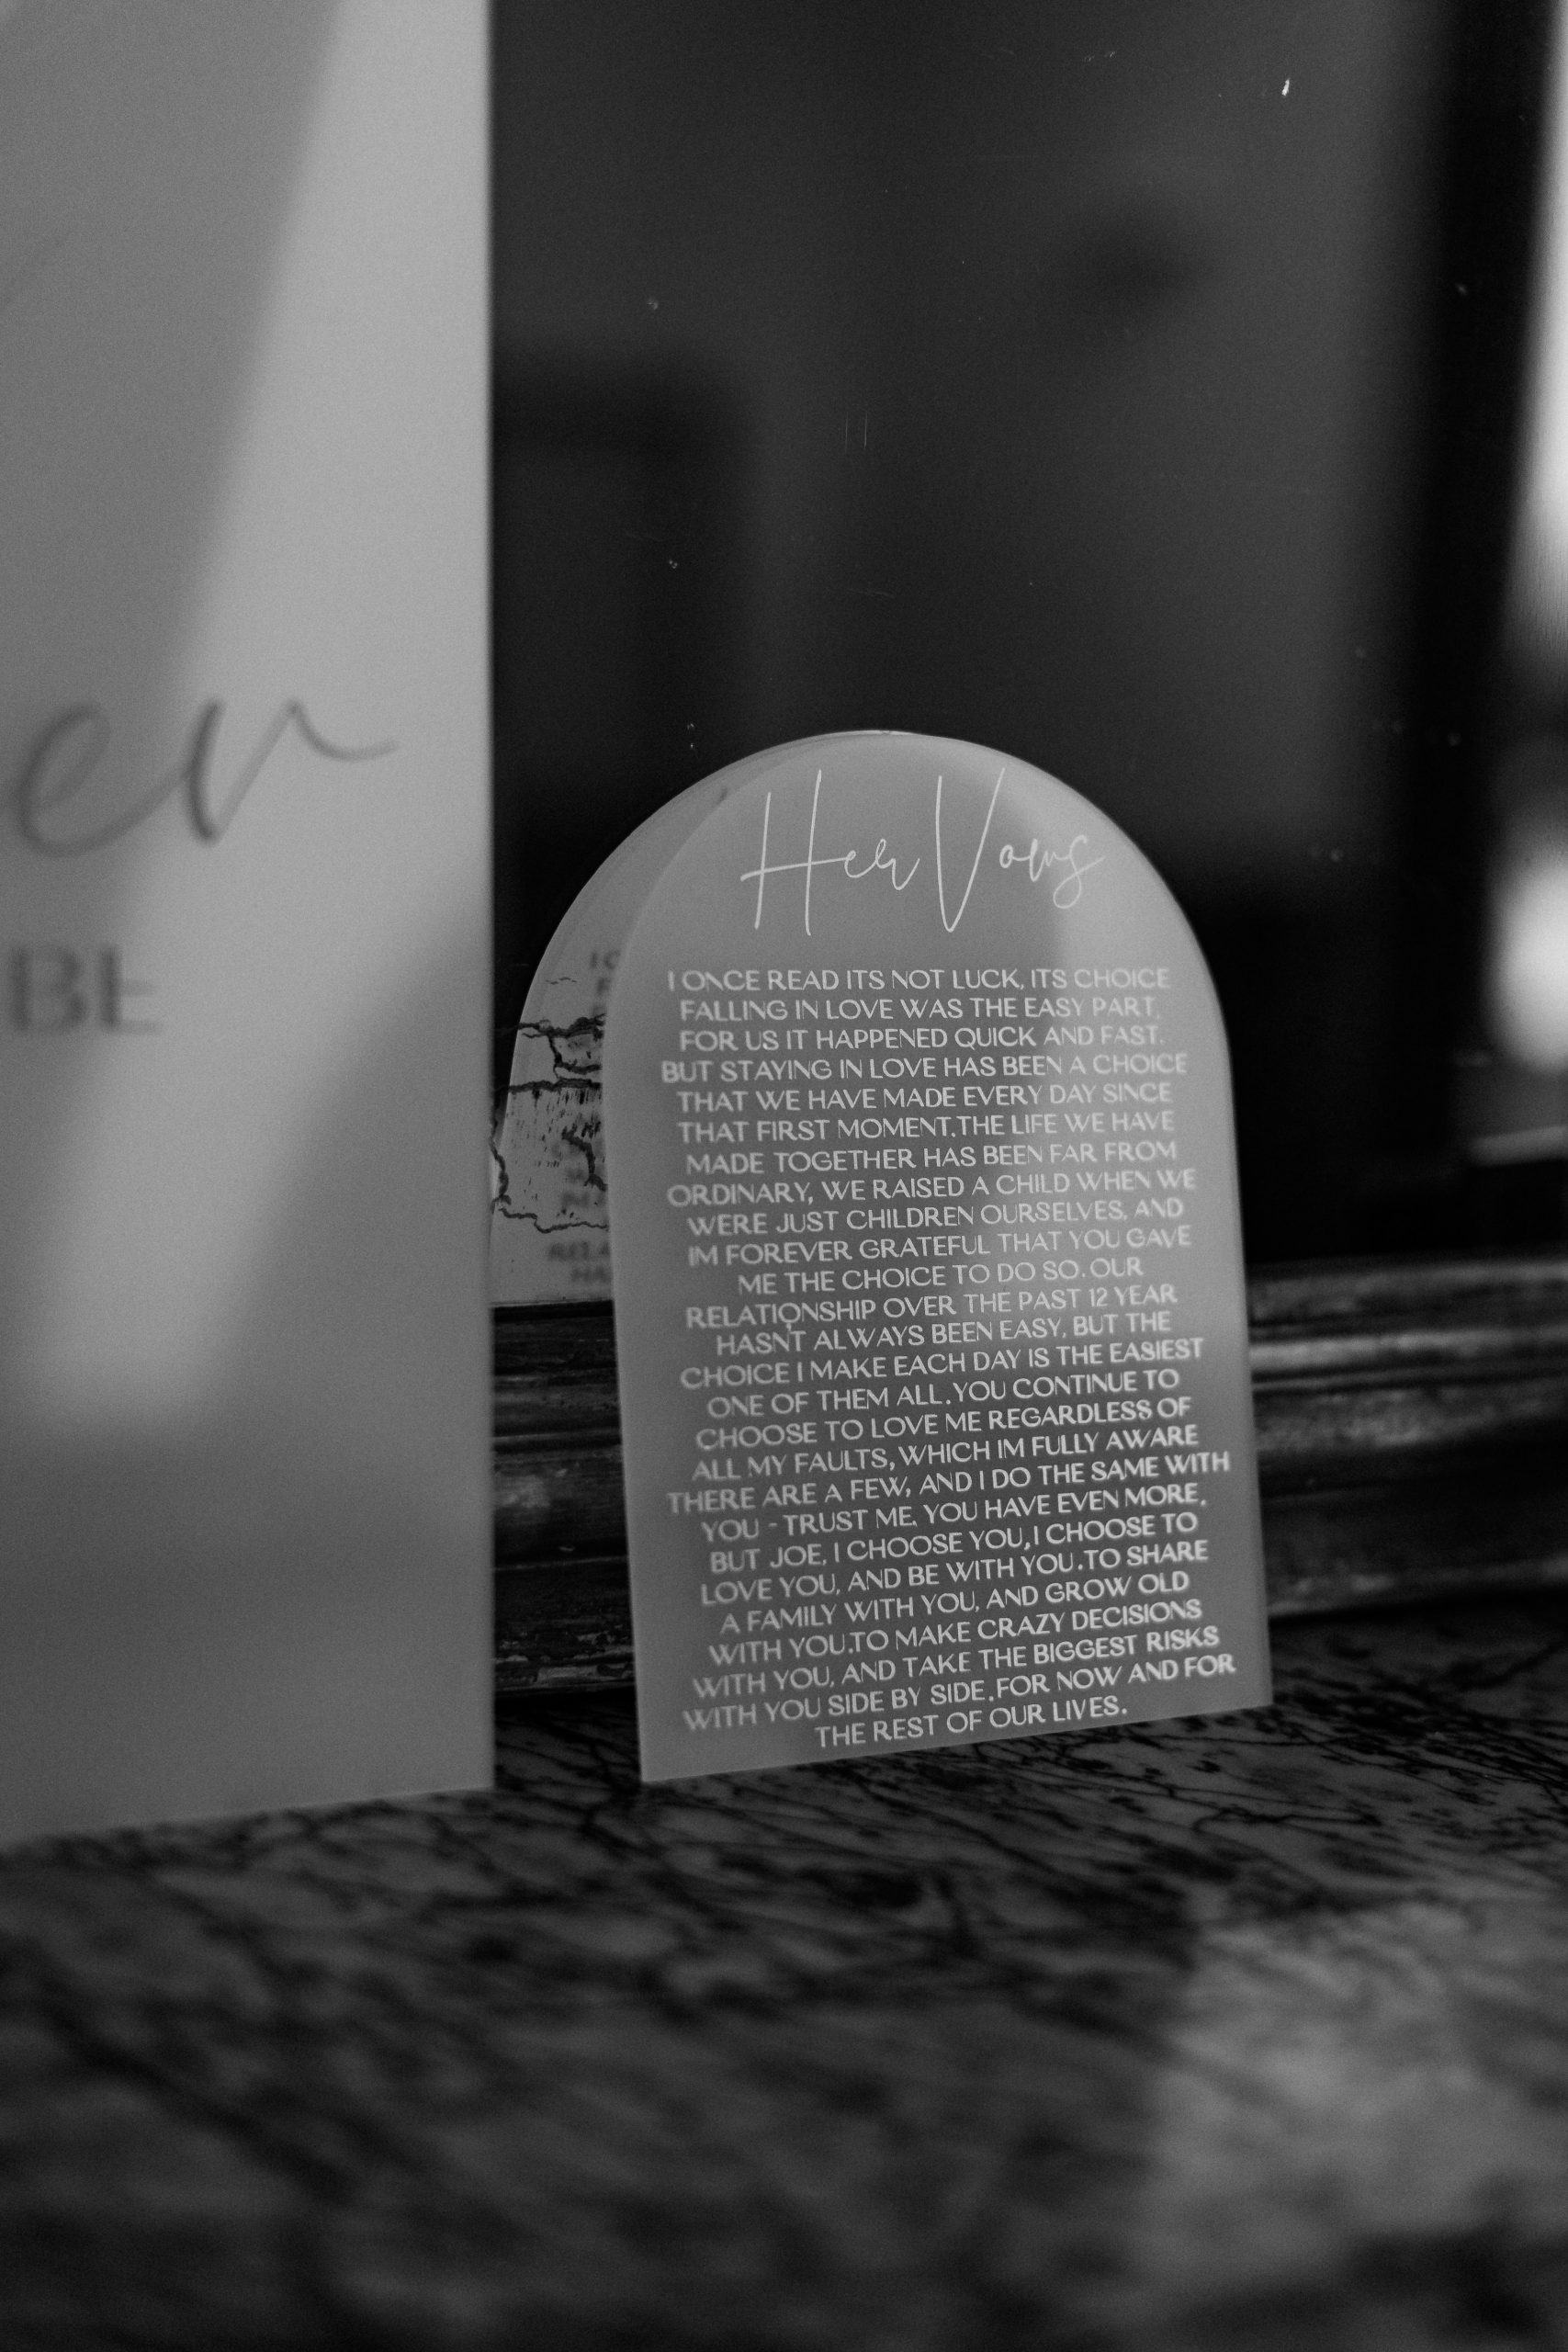 er
BE
Her Vows
I ONCE READ ITS NOT LUCK, ITS CHOICE
FALLING IN LOVE WAS THE EASY PART,
FOR US IT HAPPENED QUICK AND FAST.
BUT STAYING IN LOVE HAS BEEN A CHOICE
THAT WE HAVE MADE EVERY DAY SINCE
THAT FIRST MOMENT.THE LIFE WE HAVE
MADE TOGETHER HAS BEEN FAR FROM
ORDINARY, WE RAISED A CHILD WHEN WE
WERE JUST CHILDREN OURSELVES, AND
IM FOREVER GRATEFUL THAT YOU GAVE
ME THE CHOICE TO DO SO. OUR
RELATIONSHIP OVER THE PAST 12 YEAR
HASN'T ALWAYS BEEN EASY, BUT THE
CHOICE I MAKE EACH DAY IS THE EASIEST
ONE OF THEM ALL. YOU CONTINUE TO
CHOOSE TO LOVE ME REGARDLESS OF
ALL MY FAULTS, WHICH IM FULLY AWARE
THERE ARE A FEW, AND I DO THE SAME WITH
YOU - TRUST ME, YOU HAVE EVEN MORE.
BUT JOE, I CHOOSE YOU, I CHOOSE TO
LOVE YOU, AND BE WITH YOU.TO SHARE
A FAMILY WITH YOU, AND GROW OLD
WITH YOU.TO MAKE CRAZY DECISIONS
WITH YOU, AND TAKE THE BIGGEST RISKS
WITH YOU SIDE BY SIDE. FOR NOW AND FOR
THE REST OF OUR LIVES.